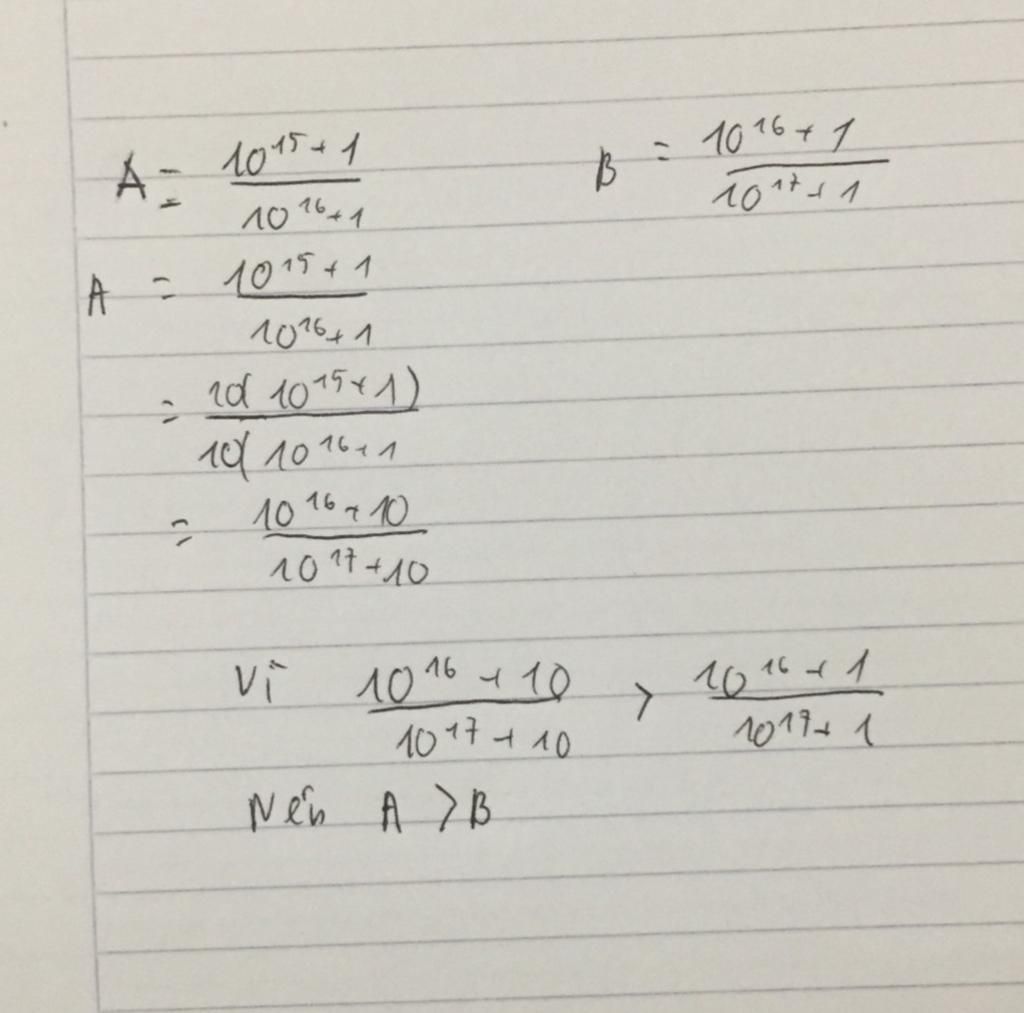 A = \frac{10^{15}+1}{10^{16}+1} B = \frac{10^{16}+1}{10^{17}+1}
A = \frac{10^{15}+1}{10^{16}+1}
= \frac{10(10^{15}+1)}{10(10^{16}+1}
= \frac{10^{16}+10}{10^{17}+10}
Vì \frac{10^{16}+10}{10^{17}+10} > \frac{10^{16}+1}{10^{17}+1}
Nên A > B